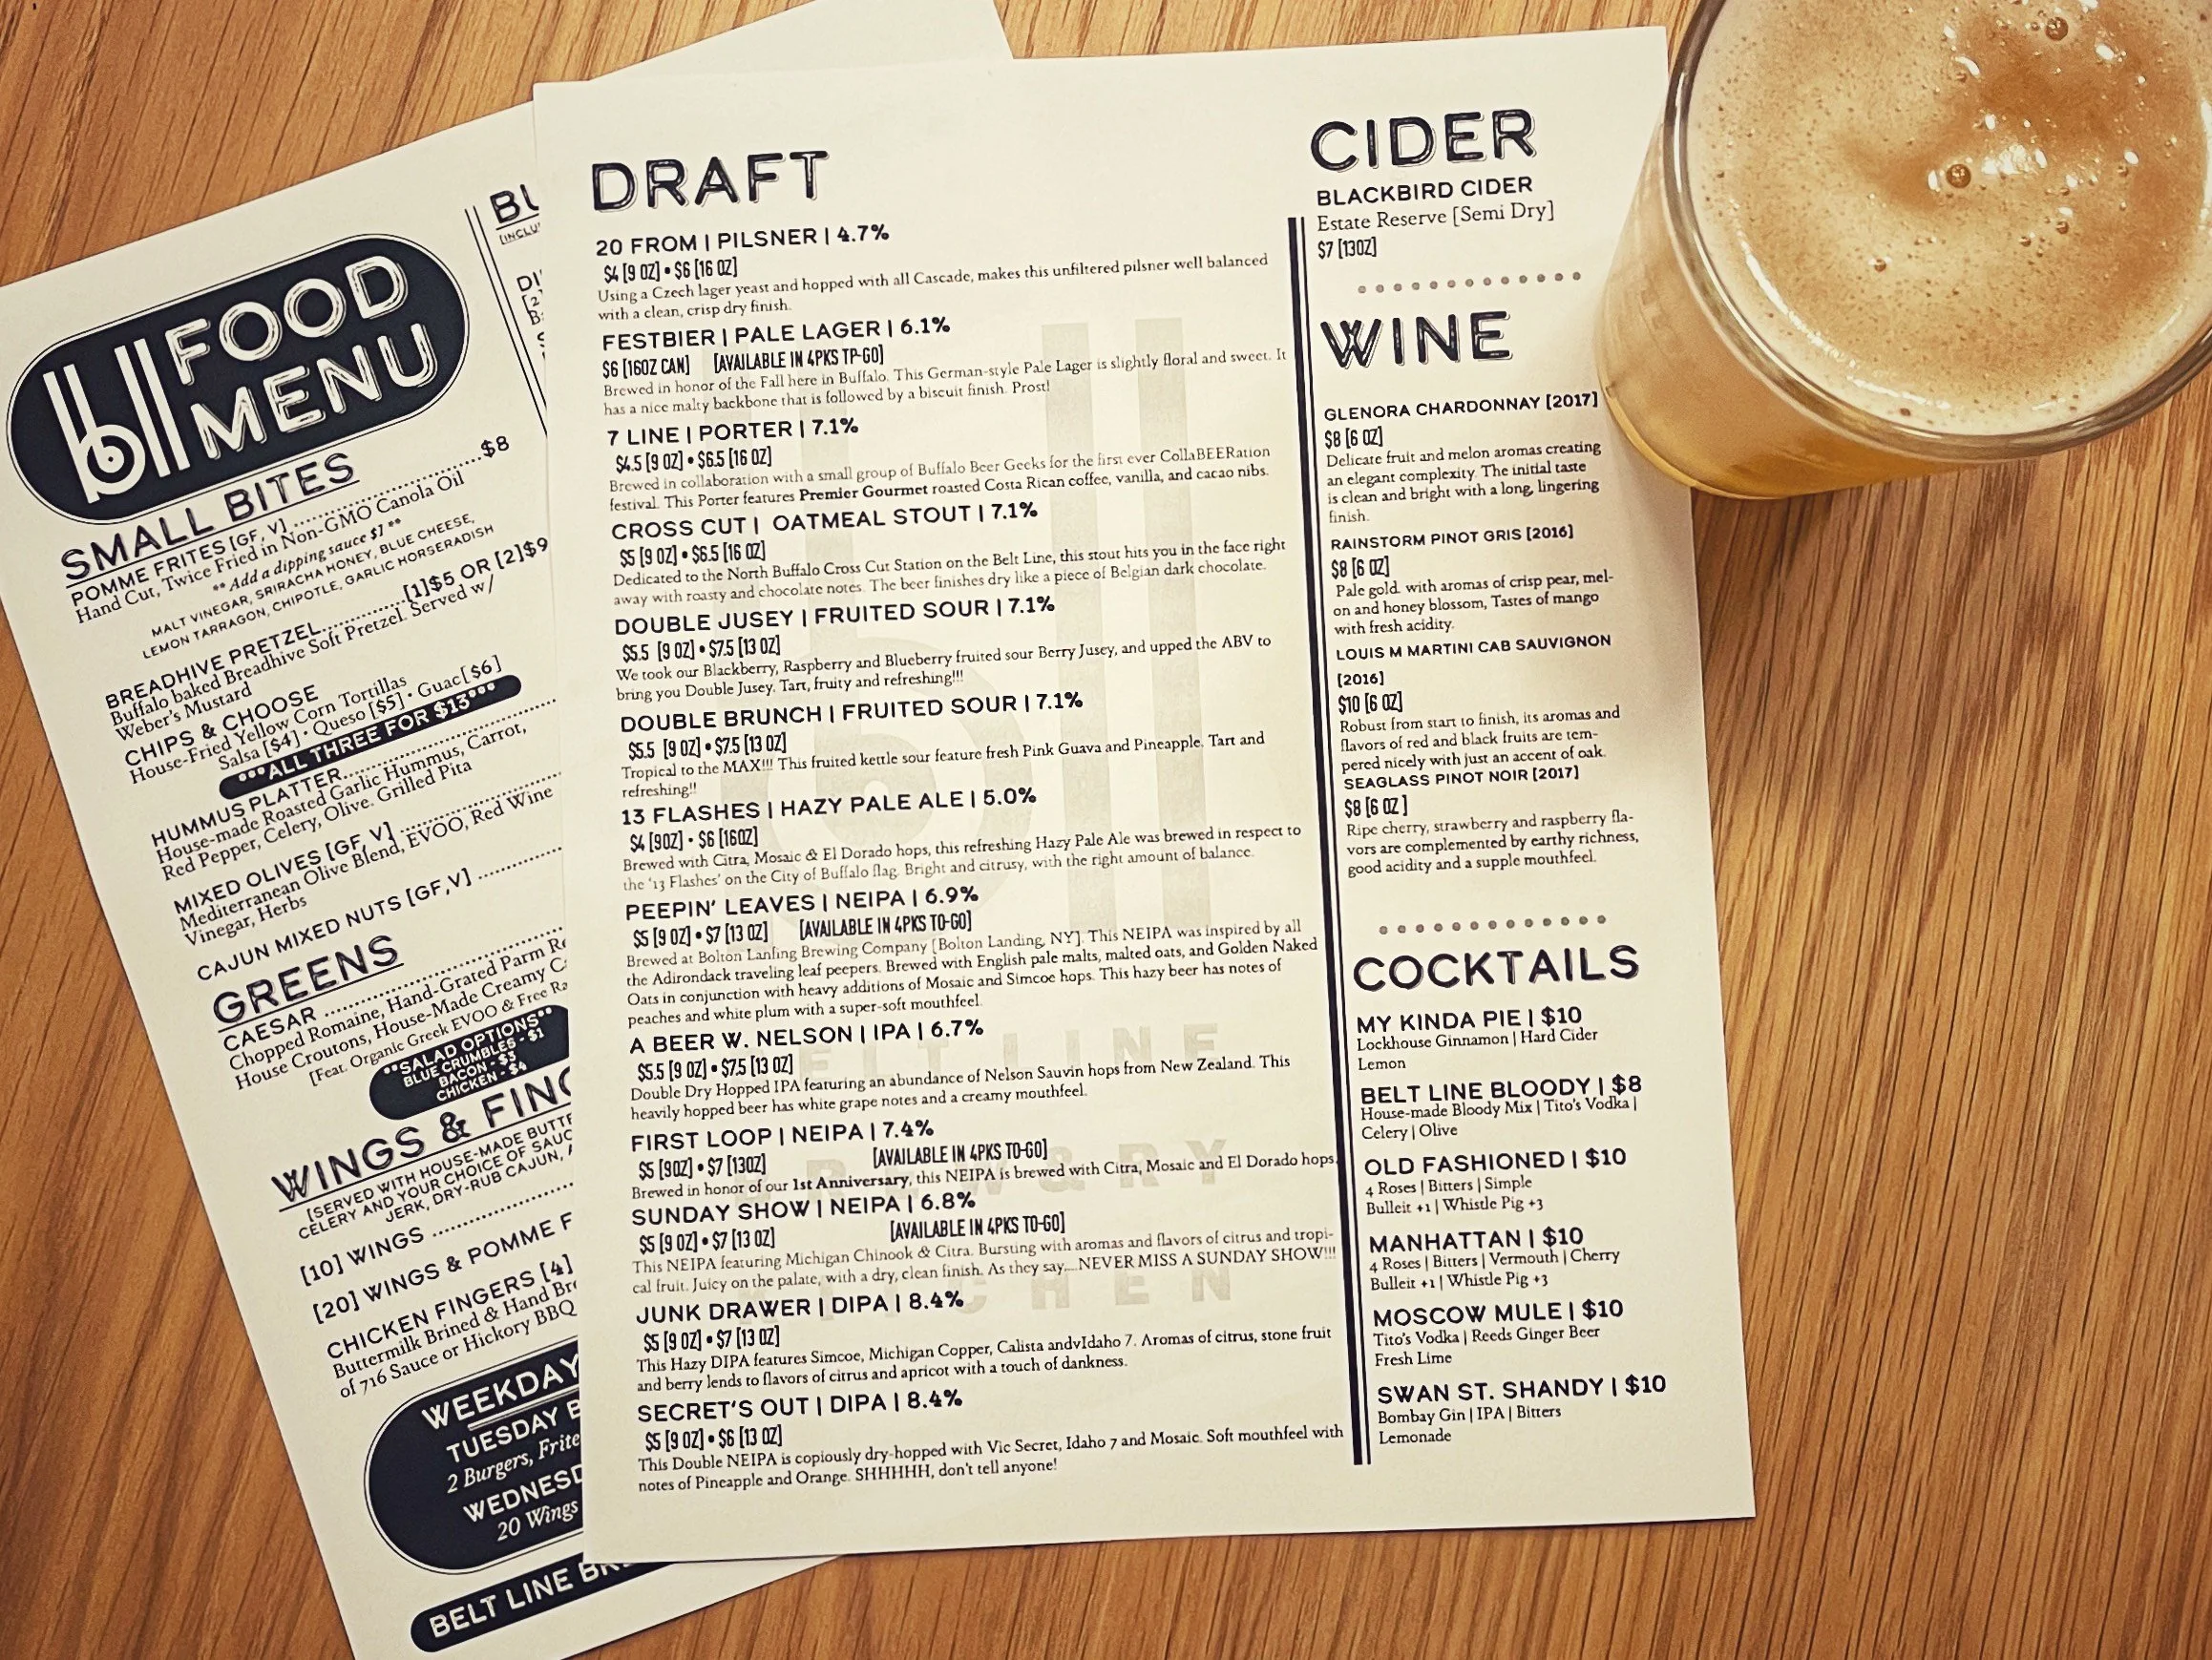 FOOD
MENU
SMALL BITES
POMME FRITES [GF, V] ........................ $8
Hand Cut, Twice Fried in Non-GMO Canola Oil
** Add a dipping sauce $1 **
MALT VINEGAR, SRIRACHA HONEY, BLUE CHEESE,
LEMON TARRAGON, CHIPOTLE, GARLIC HORSERADISH
BREADHIVE PRETZEL............[1]$5 OR [2]$9
Buffalo baked Breadhive Soft Pretzel. Served w/
Weber's Mustard
CHIPS & CHOOSE
House-Fried Yellow Corn Tortillas
Salsa [$4] • Queso [$5] • Guac[$6]
***ALL THREE FOR $13***
HUMMUS PLATTER........................
House-made Roasted Garlic Hummus, Carrot,
Red Pepper, Celery, Olive. Grilled Pita
MIXED OLIVES [GF, V] ........................
Mediterranean Olive Blend, EVOO, Red Wine
Vinegar, Herbs
CAJUN MIXED NUTS [GF,V] ............
GREENS
CAESAR ........................
Chopped Romaine, Hand-Grated Parm
House Croutons, House-Made Creamy
[Feat. Organic Greek EVOO & Free
**SALAD OPTIONS**
BLUE CRUMBLES - $1
BACON - $3
CHICKEN - $4
WINGS & FING
[SERVED WITH HOUSE-MADE
CELERY AND YOUR CHOICE OF
JERK, DRY-RUB CAJUN,
[10] WINGS ............
[20] WINGS & POMME F
CHICKEN FINGERS [4]
Buttermilk Brined & Hand
of 716 Sauce or Hickory BBQ
WEEKDAY
TUESDAY
2 Burgers,
WEDNESD
20 Wings
BELT LINE
DRAFT
20 FROM | PILSNER | 4.7%
$4 [9 OZ] • $6 [16 OZ]
Using a Czech lager yeast and hopped with all Cascade, makes this unfiltered pilsner well balanced
with a clean, crisp dry finish.
FESTBIER | PALE LAGER | 6.1%
$6 [16OZ CAN] [AVAILABLE IN 4PKS TP-GO]
Brewed in honor of the Fall here in Buffalo. This German-style Pale Lager is slightly floral and sweet. It
has a nice malty backbone that is followed by a biscuit finish. Prost!
7 LINE | PORTER | 7.1%
$4.5 [9 OZ] • $6.5 [16 OZ]
Brewed in collaboration with a small group of Buffalo Beer Geeks for the first ever CollaBEERation
festival. This Porter features Premier Gourmet roasted Costa Rican coffee, vanilla, and cacao nibs.
CROSS CUT | OATMEAL STOUT | 7.1%
$5 [9 OZ] • $6.5 [16 OZ]
Dedicated to the North Buffalo Cross Cut Station on the Belt Line, this stout hits you in the face right
away with roasty and chocolate notes. The beer finishes dry like a piece of Belgian dark chocolate.
DOUBLE JUSEY | FRUITED SOUR | 7.1%
$5.5 [9 OZ] • $7.5 [13 OZ]
We took our Blackberry, Raspberry and Blueberry fruited sour Berry Jusey, and upped the ABV to
bring you Double Jusey. Tart, fruity and refreshing!!!
DOUBLE BRUNCH | FRUITED SOUR | 7.1%
$5.5 [9 OZ] • $7.5 [13 OZ]
Tropical to the MAX!!! This fruited kettle sour feature fresh Pink Guava and Pineapple. Tart and
refreshing!!
13 FLASHES | HAZY PALE ALE | 5.0%
$4 [9OZ] • $6 [16OZ]
Brewed with Citra, Mosaic & El Dorado hops, this refreshing Hazy Pale Ale was brewed in respect to
the '13 Flashes' on the City of Buffalo flag. Bright and citrusy, with the right amount of balance.
PEEPIN' LEAVES | NEIPA | 6.9%
$5 [9 OZ] • $7 [13 OZ] [AVAILABLE IN 4PKS TO-GO]
Brewed at Bolton Lanfing Brewing Company [Bolton Landing, NY]. This NEIPA was inspired by all
the Adirondack traveling leaf peepers. Brewed with English pale malts, malted oats, and Golden Naked
Oats in conjunction with heavy additions of Mosaic and Simcoe hops. This hazy beer has notes of
peaches and white plum with a super-soft mouthfeel.
A BEER W. NELSON | IPA | 6.7%
$5.5 [9 OZ] • $7.5 [13 OZ]
Double Dry Hopped IPA featuring an abundance of Nelson Sauvin hops from New Zealand. This
heavily hopped beer has white grape notes and a creamy mouthfeel.
FIRST LOOP | NEIPA | 7.4%
$5 [9OZ] • $7 [13OZ] [AVAILABLE IN 4PKS TO-GO]
Brewed in honor of our 1st Anniversary, this NEIPA is brewed with Citra, Mosaic and El Dorado hops.
SUNDAY SHOW | NEIPA | 6.8%
$5 [9 OZ] • $7 [13 OZ] [AVAILABLE IN 4PKS TO-GO]
This NEIPA featuring Michigan Chinook & Citra. Bursting with aromas and flavors of citrus and tropi-
cal fruit. Juicy on the palate, with a dry, clean finish. As they say....NEVER MISS A SUNDAY SHOW!!!
JUNK DRAWER | DIPA | 8.4%
$5 [9 OZ] • $7 [13 OZ]
This Hazy DIPA features Simcoe, Michigan Copper, Calista andvIdaho 7. Aromas of citrus, stone fruit
and berry lends to flavors of citrus and apricot with a touch of dankness.
SECRET'S OUT | DIPA | 8.4%
$5 [9 OZ] • $6 [13 OZ]
This Double NEIPA is copiously dry-hopped with Vic Secret, Idaho 7 and Mosaic. Soft mouthfeel with
notes of Pineapple and Orange. SHHHHH, don't tell anyone!
CIDER
BLACKBIRD CIDER
Estate Reserve [Semi Dry]
$7 [13OZ]
WINE
GLENORA CHARDONNAY [2017]
$8 [6 OZ]
Delicate fruit and melon aromas creating
an elegant complexity. The initial taste
is clean and bright with a long, lingering
finish.
RAINSTORM PINOT GRIS [2016]
$8 [6 OZ]
Pale gold. with aromas of crisp pear, mel-
on and honey blossom, Tastes of mango
with fresh acidity.
LOUIS M MARTINI CAB SAUVIGNON
[2016]
$10 [6 OZ]
Robust from start to finish, its aromas and
flavors of red and black fruits are tem-
pered nicely with just an accent of oak.
SEAGLASS PINOT NOIR [2017]
$8 [6 OZ ]
Ripe cherry, strawberry and raspberry fla-
vors are complemented by earthy richness,
good acidity and a supple mouthfeel.
COCKTAILS
MY KINDA PIE | $10
Lockhouse Ginnamon | Hard Cider
Lemon
BELT LINE BLOODY | $8
House-made Bloody Mix | Tito's Vodka |
Celery | Olive
OLD FASHIONED | $10
4 Roses | Bitters | Simple
Bulleit +1 | Whistle Pig +3
MANHATTAN | $10
4 Roses | Bitters | Vermouth | Cherry
Bulleit +1 | Whistle Pig +3
MOSCOW MULE | $10
Tito's Vodka | Reeds Ginger Beer
Fresh Lime
SWAN ST. SHANDY | $10
Bombay Gin | IPA | Bitters
Lemonade